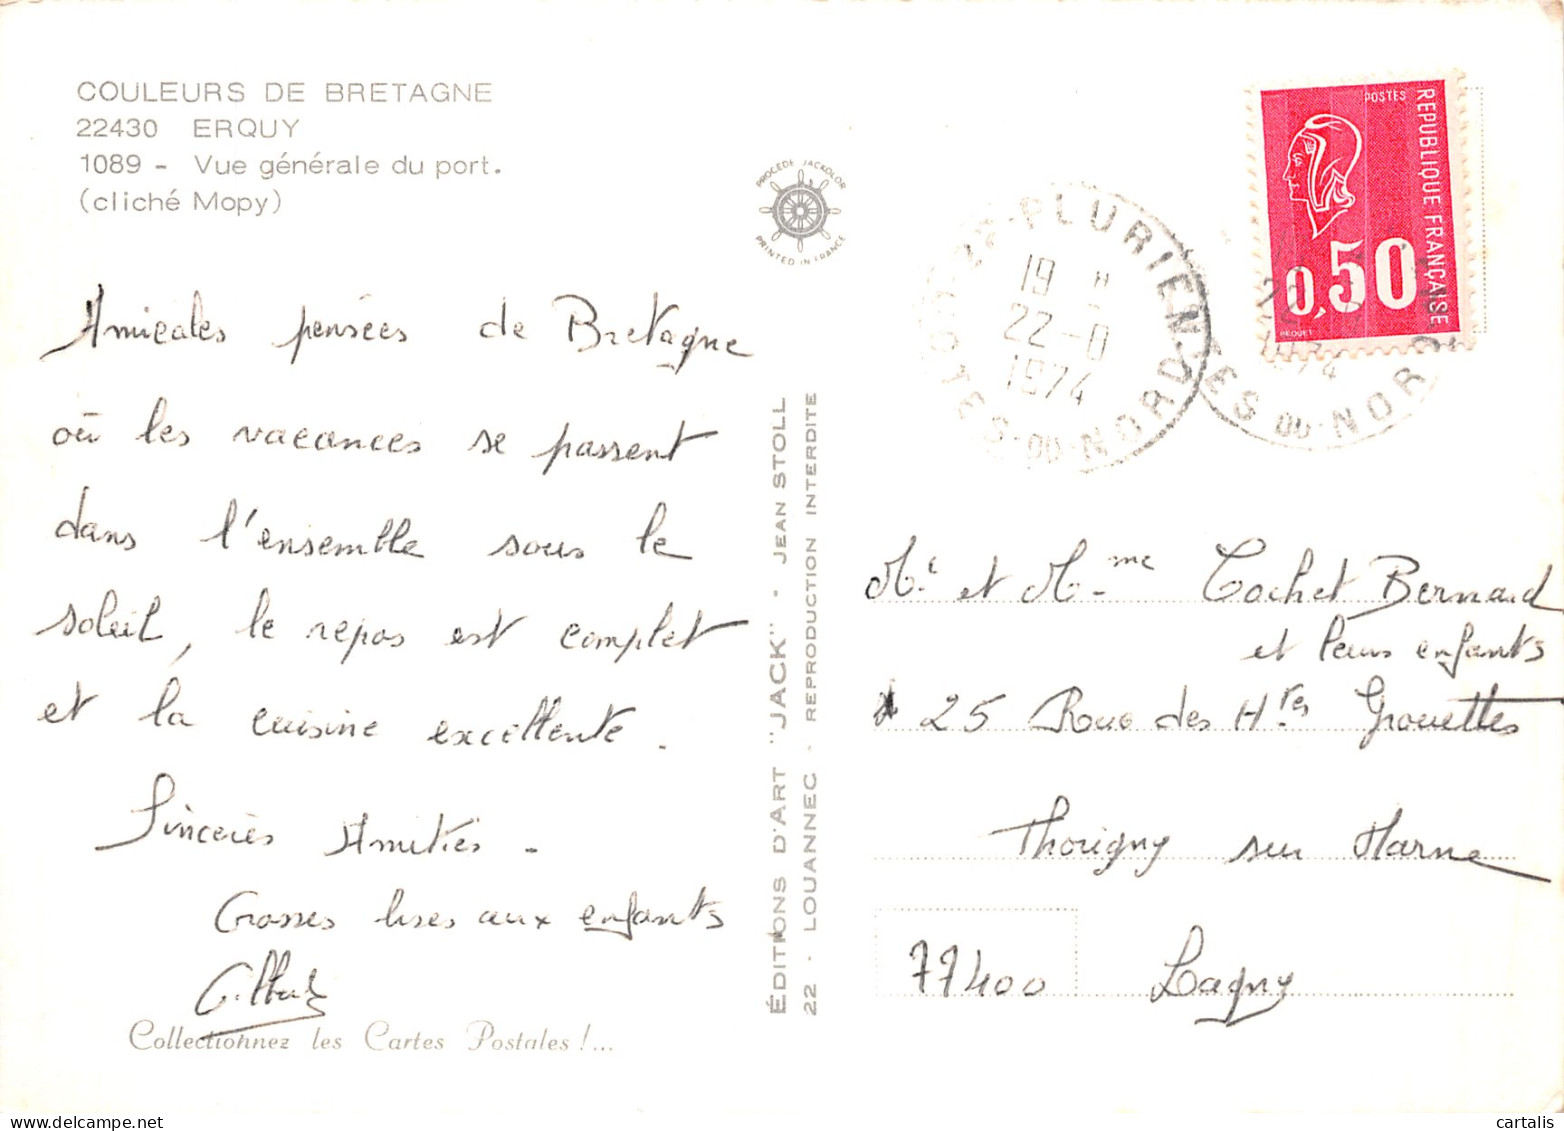 COULEURS DE BRETAGNE
22430 ERQUY
1089 - Vue générale du port.
(cliché Mopy)
PROCÉDÉ JACKOLOR
PRINTED IN FRANCE
Amicales pensées de Bretagne
où les vacances se passent
dans l'ensemble sous le
soleil, le repos est complet
et la cuisine excellente.
Sincères Amitiés.
Grosses bises aux enfants
Collectionnez les Cartes Postales !...
ÉDITIONS D'ART "JACK" - JEAN STOLL
22 - LOUANNEC - REPRODUCTION INTERDITE
22-PLURIEN
19 H
22-8
1974
COTES-DU-NORD
POSTES
REPUBLIQUE FRANÇAISE
0,50
BEQUET
1974
ES DU-NORD
Mr. et M.me Cochet Bernard
et leurs enfants
25 Rue des Htes Grouettes
Thorigny sur Marne
77400 Lagny
cartalis